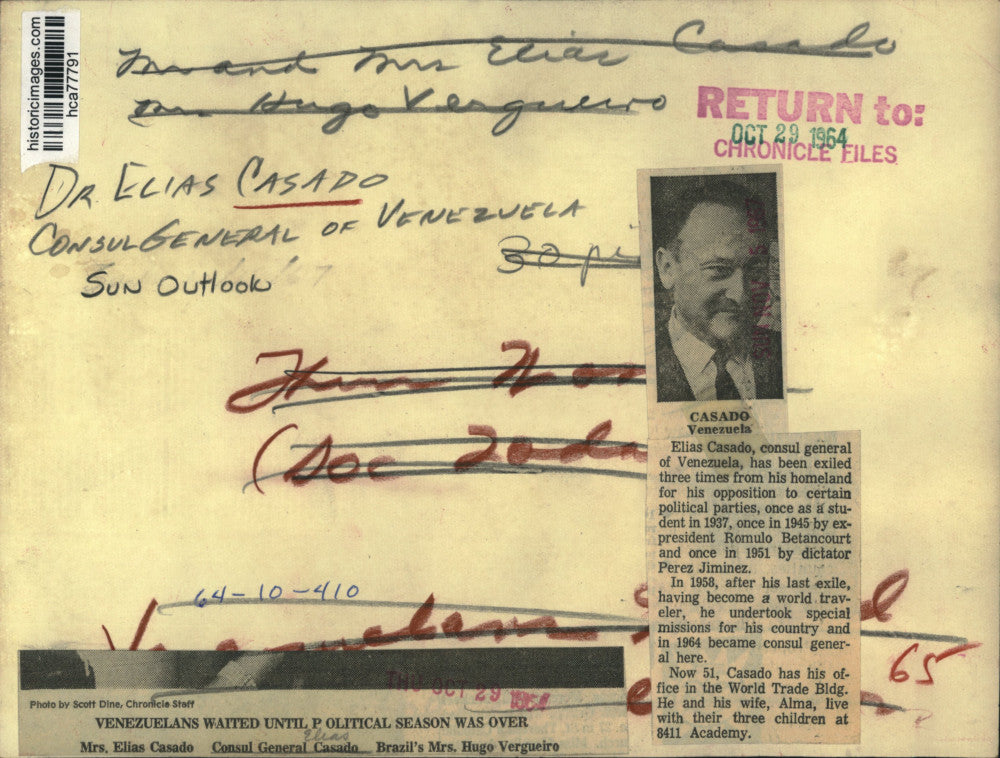 historicimages.com
hca77791
Mr and Mrs Elias Casado
Mr. Hugo Vergueiro
RETURN to:
OCT 29 1964
CHRONICLE FILES
DR. ELIAS CASADO
CONSUL GENERAL OF VENEZUELA
SUN OUTLOOK
30 pi
CASADO
Venezuela
Elias Casado, consul general
of Venezuela, has been exiled
three times from his homeland
for his opposition to certain
political parties, once as a stu-
dent in 1937, once in 1945 by ex-
president Romulo Betancourt
and once in 1951 by dictator
Perez Jiminez.
In 1958, after his last exile,
having become a world trav-
eler, he undertook special
missions for his country and
in 1964 became consul gener-
al here.
Now 51, Casado has his of-
fice in the World Trade Bldg.
He and his wife, Alma, live
with their three children at
8411 Academy.
(Soc Toda
64-10-410
65
THU OCT 29 1964
Photo by Scott Dine, Chronicle Staff
VENEZUELANS WAITED UNTIL P OLITICAL SEASON WAS OVER
Elias
Mrs. Elias Casado Consul General Casado Brazil's Mrs. Hugo Vergueiro